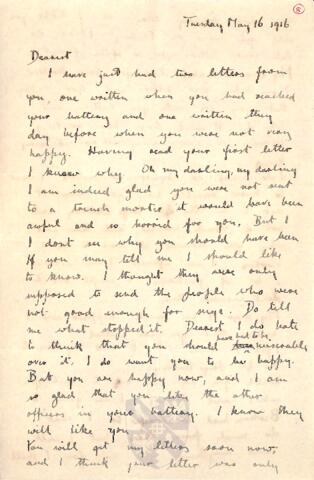 Tuesday May 16 1916
Dearest
I have just had two letters from
you, one written when you had reached
your battery and one written the
day before when you were not very
happy. Having read your first letter
I know why. Oh my darling, my darling
I am indeed glad you were not sent
to a trench mortar it would have been
awful and so horrid for you. But I
I dont see why you should have been
If you may tell me I should like
to know. I thought they were only
supposed to send the people who were
not good enough for Do tell
me what stopped it. Dearest I do hate
to think that you should have had to be miserable
over it. I do want you to be happy.
But you are happy now, and I am
so glad that you like the other
officers in your battery. I know they
will like you
You will get my letters soon now,
and I think your letter was only